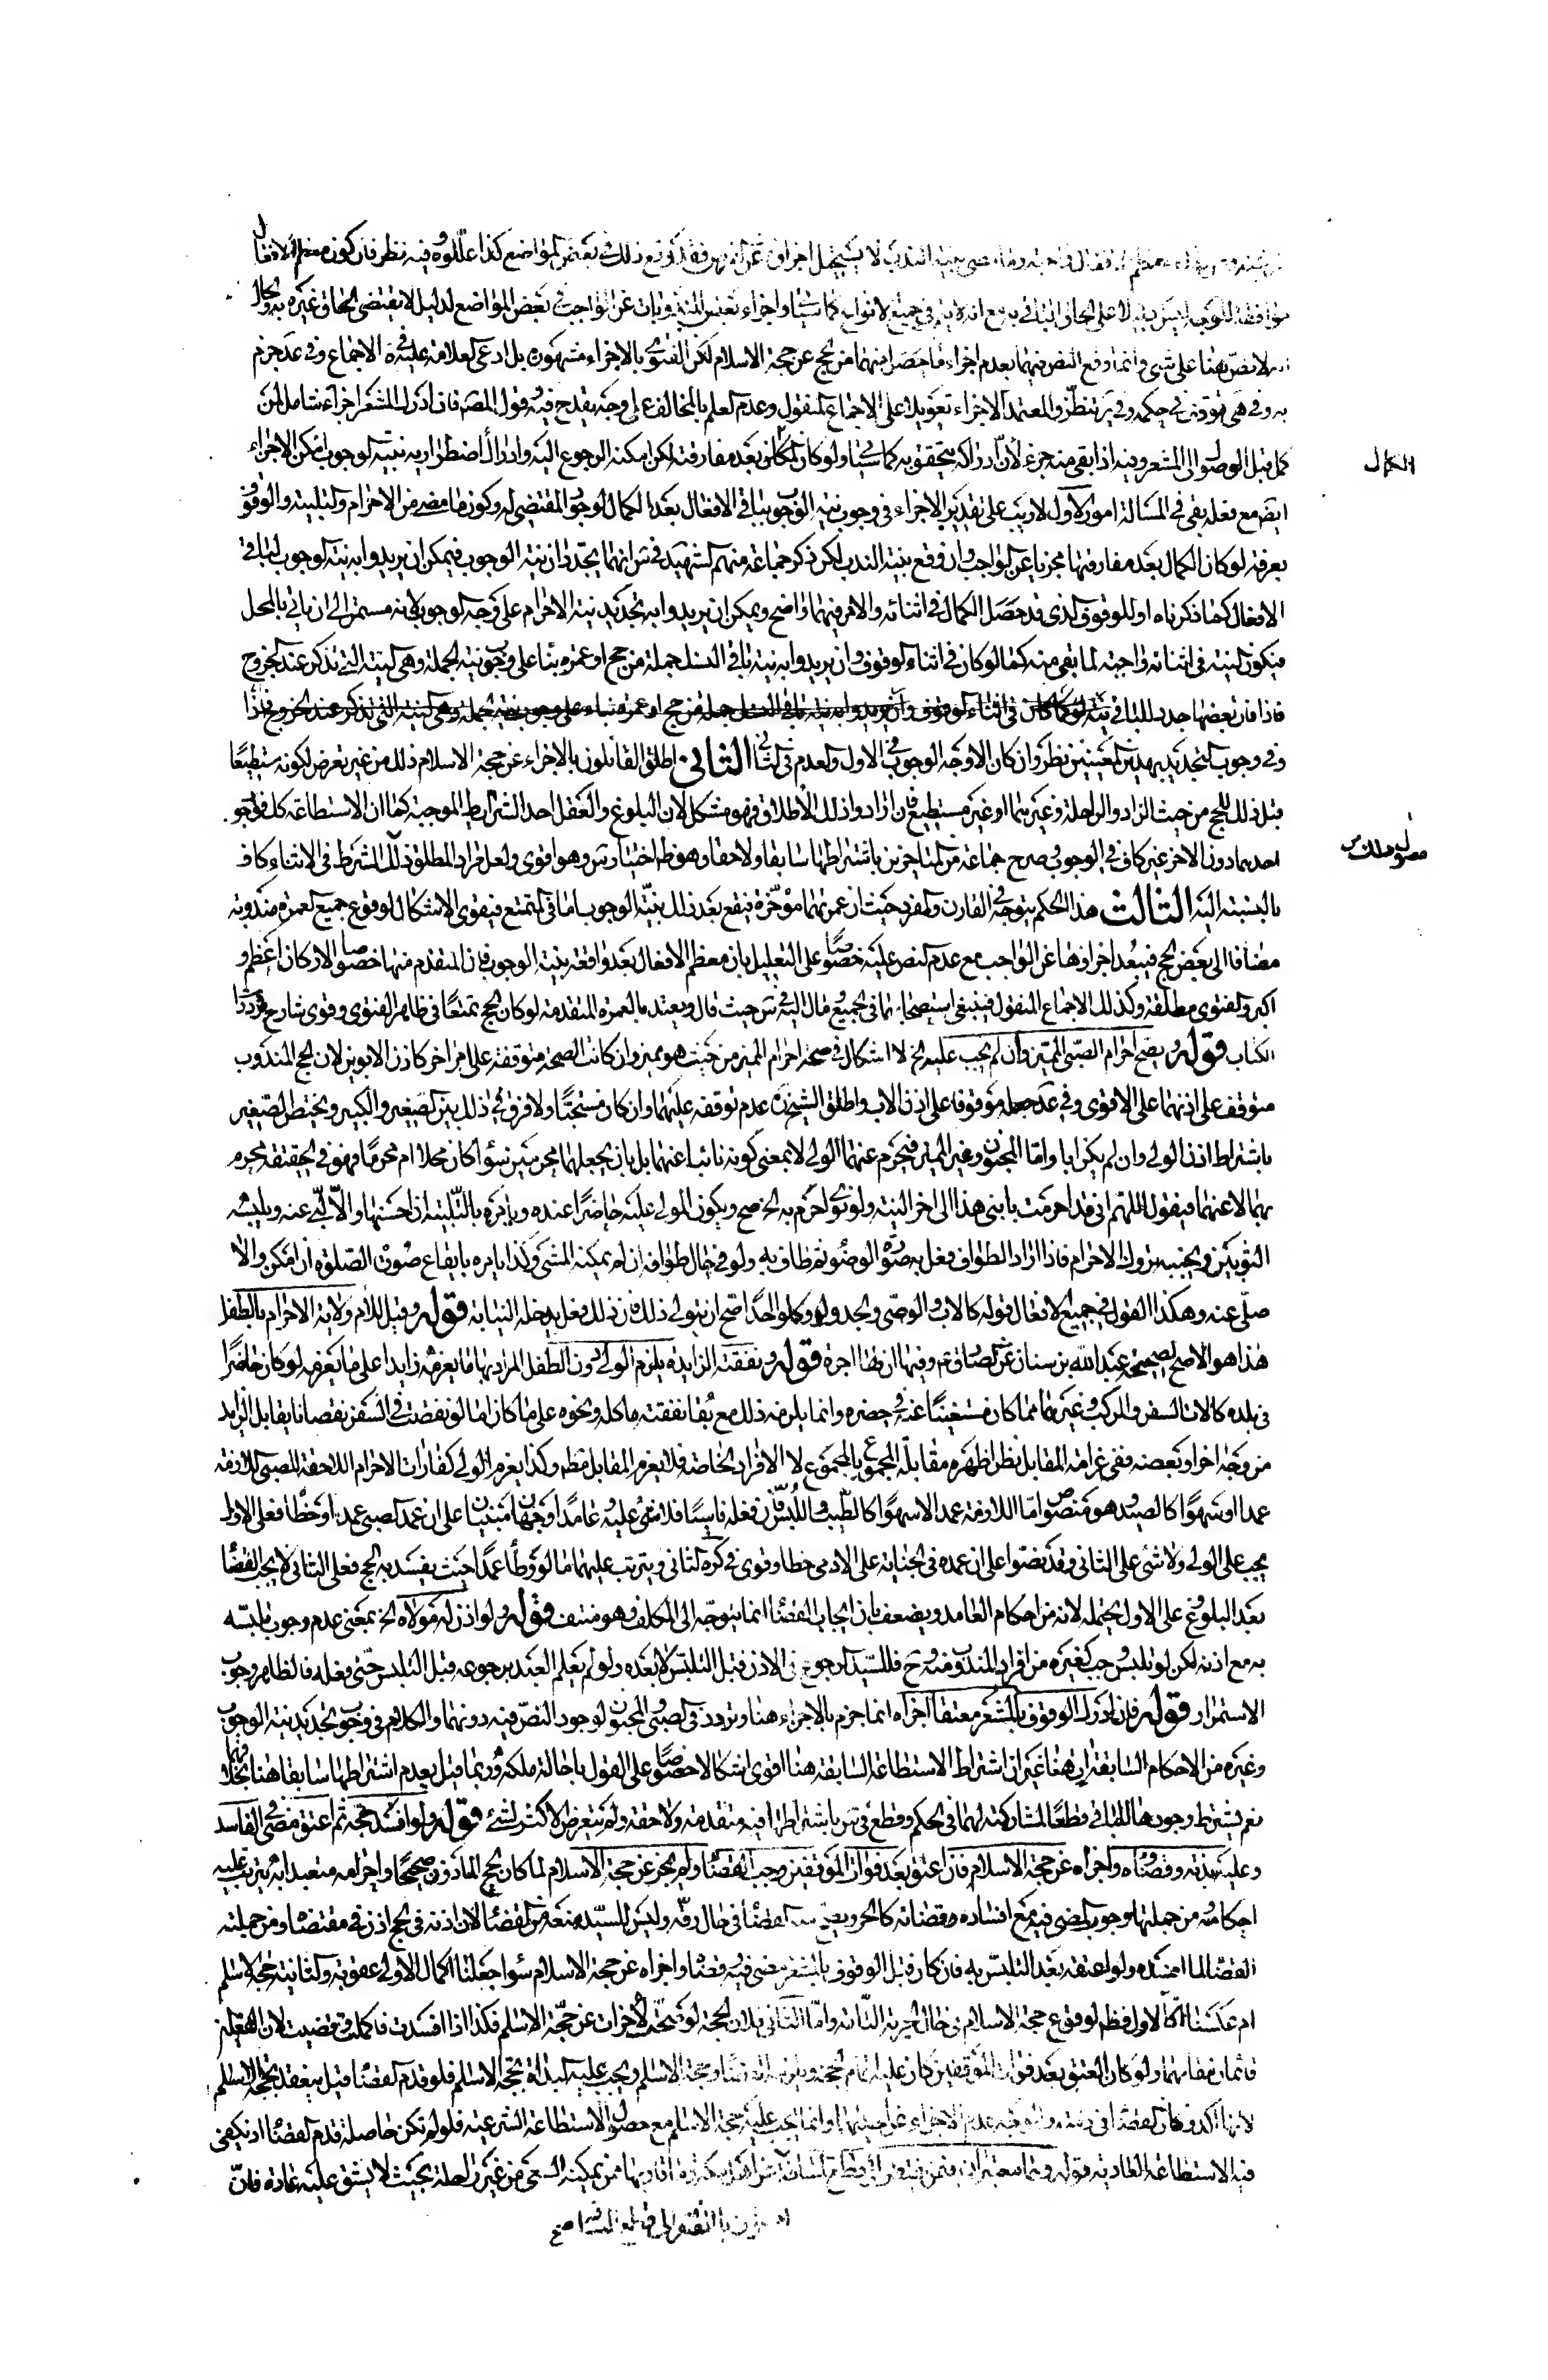 لا يستحيل اجزاؤه عن الفرض فقد وقع ذلك في بعض المواضع كذا عللوه وفيه نظر فان كون معظم الافعال
موافقة للوجه ليس دليلا على الحاق الباقي به مع انه لا يتم في جميع الانواع كما سيأتي واجزاء بعض المندوبات عن الواجب في بعض المواضع لدليل لا يقتضي الحاق غيره به والحال
انه لا نص هنا على شيء وانما وقع النص فيهما بعدم اجزاء ما حصل منهما من الحج عن حجة الاسلام لكن الفتوى بالاجزاء مشهورة بل ادعى العلامة عليه في كره الاجماع وفي عد جزم
به وفي هي توقف في حكمه وفي ير تنظر والمعتمد الاجزاء تعويلا على الاجماع المنقول وعدم العلم بالمخالف على وجه يقدح فيه وقول المصم فان ادرك المشعر اجزأه شامل لمن
كمل قبل الوصول الى المشعر وفيه اذا بقي منه جزء لان ادراكه يتحقق به كما سيأتي ولو كان الكمال بعد مفارقته لكن امكنه الرجوع اليه وادراك اضطراريه بنية الوجوب امكن الاجزاء
الكمال
ايضا مع فعله بقي في المسالة امور الاول لا ريب على تقدير الاجزاء في وجوب نية الوجوب بباقي الافعال بعد الكمال لوجود المقتضي له وكون ما مضى من الاحرام والتلبية والوقوف
بعرفة لو كان الكمال بعد مفارقتها مجزيا عن الواجب وان وقع بنية الندب لكن ذكر جماعة منهم الشهيد في س انهما يجددان نية الوجوب فيمكن ان يريدوا به نية الوجوب لباقي
الافعال كما ذكرناه او للوقوف الذي قد حصل الكمال في اثنائه والامر فيهما واضح ويمكن ان يريدوا به تجديد نية الاحرام على وجه الوجوب لانه مستمر الى ان ياتي بالمحلل
فيكون النية في اثنائه واجبة لما بقي منه كما لو كان في اثناء الوقوف وان يريدوا به نية باقي النسك جملة من حج او عمرة بناء على وجوب نية الجملة وهي النية التي تذكر عند الخروج
فاذا فات بعضها جدد للباقي نية لو كما كان في اثناء الوقوف وان يريدوا به نية باقي النسك جملة من حج او عمرة بناء على وجوب نية الجملة وهي النية التي تذكر عند الخروج فاذا
وفي وجوب التجديد بهذين المعنيين نظر وان كان الاوجه الوجوب في الاول والعدم في الثاني الثاني اطلق القائلون بالاجزاء عن حجة الاسلام ذلك من غير تعرض لكونه مستطيعا
قبل ذلك للحج من حيث الزاد والراحلة وغيرهما او غير مستطيع فان ارادوا ذلك الاطلاق فهو مشكل لان البلوغ والعقل احد الشرايط الموجبة كما ان الاستطاعة كك فوجود
احدهما دون الاخر غير كاف في الوجوب وصرح جماعة من المتاخرين باشتراطها سابقا ولاحقا وهو ظ اختيار س وهو اقوى ولعل مراد المطلق ذلك المشرط في الاثناء كاف
بالنسبة اليه الثالث هذا الحكم يتوجه في القارن والمفرد حيث ان عمرتهما مؤخرة فيقع بعد ذلك بنية الوجوب اما في التمتع فيقوى الاشكال لوقوع جميع العمرة مندوبة
مضافا الى بعض الحج فيبعد اجزاؤها عن الواجب مع عدم النص عليه خصوصا على التعليل بان معظم الافعال بعد واقعة بنية الوجوب فان المتقدم منها خصوصا الاركان اعظم و
اكبر والفتوى مطلقة وكذلك الاجماع المنقول فينبغي استصحابهما في الجميع ومال اليه في س حيث قال ويعتد بالعمرة المتقدمة لو كان الحج تمتعا في ظاهر الفتوى وقوى شارح
الكتاب قوله ويصح احرام الصبي المميز وان لم يجب عليه الخ لا اشكال في صحة احرام المميز من حيث هو مميز وان كانت الصحة متوقفة على امر اخر كاذن الابوين لان الحج المندوب
متوقف على اذنهما على الاقوى وفي عد جعله موقوفا على اذن الاب واطلق الشيخ ره عدم توقفه عليهما وان كان مستحبا ولا فرق في ذلك بين الصغير والكبير ويختص الصغير
باشتراط اذن الولي وان لم يكن ابا واما المجنون وغير المميز فيحرم عنهما الولي لا بمعنى كونه نائبا عنهما بل بان يجعلهما محرمين سواء كان محلا ام محرما فهو في الحقيقة محرم
بهما لا عنهما فيقول اللهم اني قد احرمت بابني هذا الى اخر النية ولو نوى احرم به الخ صح ويكون المولى عليه حاضرا عنده ويامره بالتلبية ان احسنها والا لبى عنه ويلبسه
الثوبين ويجنبه تروك الاحرام فاذا اراد الطواف فعل به صورة الوضوء ثم طاف به ولو في حال طوافه ان لم يمكنه المشي وكذا يامره بايقاع صورة الصلوة ان امكن والا
صلى عنه وهكذا القول في جميع الافعال قوله كالاب والوصي والجد ولو وكلوا احدا صح ان يتولى ذلك فان ذلك فعل يدخله النيابة قوله وقيل للام ولاية الاحرام بالطفل
هذا هو الاصح لصحيحة عبد الله بن سنان عن الصادق ع وفيها ان لها اجره قوله ونفقته الزايدة يلزم الولي دون الطفل المراد بها ما يغرمه زايدا على ما يغرمه لو كان حاضرا
في بلده كالات السفر والمركب وغيرهما مما كان مستغنيا عنه في حضره وانما يلزمه ذلك مع بقاء نفقته ماكله ونحوه على ما كان اما لو نقصت في السفر نقصانا يقابل الزايد
من وجه اخر او بعضه ففي غرامة المقابل نظر اظهره مقابلة المجموع بالمجموع لا الافراد الخاصة فلا يغرم المقابل مطم وكذا يغرم الولي كفارات الاحرام اللاحقة للصبي اللازمة
عمدا او سهوا كالصيد وهو منصوص اما اللازمة عمدا لا سهوا كالطيب واللبس فان فعله ناسيا فلا شيء عليه وعامدا وجهان مبنيان على ان عمد الصبي عمد او خطأ فعلى الاول
يجب على الولي ولا شيء على الثاني وقد نصوا على ان عمده في الجناية على الادمي خطا وقوى في كره الثاني ويترتب عليهما ما لو وطأ عمدا حيث يفسد به الحج فعلى الثاني لا يجب القضاء
بعد البلوغ وعلى الاول يحتمله لانه من احكام العامد ويضعف بان ايجاب القضاء انما يتوجه الى المكلف وهو منتف قوله ولو اذن له مولاه الخ بمعنى عدم وجوب تلبسه
به مع اذنه لكن لو تلبس وجب كغيره من افراد المندوب منه وح فللسيد الرجوع في الاذن قبل التلبس لا بعده ولو لم يعلم العبد برجوعه قبل التلبس حتى فعله فالظاهر وجوب
الاستمرار قوله فان ادرك الوقوف بالمشعر معتقا اجزأه انما جزم بالاجزاء هنا وتردد في الصبي والمجنون لوجود النص فيه دونهما والكلام في وجوب تجديد نية الوجوب
وغيره من الاحكام السابقة ات هنا غير ان اشتراط الاستطاعة السابقة هنا اقوى اشكالا خصوصا على القول باحالة ملكه وربما قيل بعدم اشتراطها سابقا هنا بخلافهما
نعم يشترط وجودها للباقي قطعا لمشاركته لهما في الحكم وقطع في س باشتراطها فيه متقدمة ولاحقة ولم يتعرض الاكثر لشيء قوله ولو افسد حجه ثم اعتق مضى في الفاسد
وعليه بدنة وقضاه واجزاه عن حجة الاسلام فان اعتق بعد فوات الموقفين وجب القضاء ولم يجز عن حجة الاسلام لما كان حج الماذون صحيحا واحرامه متعبدا به ترتب عليه
احكامه ومن جملتها وجوب المضي فيه مع افساده وقضائه كالحر ويصح منه القضاء في حال رقه وليس للسيد منعه من القضاء لان اذنه في الحج اذن في مقتضاه ومن جملته
القضاء لما افسده ولو اعتقه بعد التلبس به فان كان قبل الوقوف بالمشعر مضى فيه وقضاه واجزاه عن حجة الاسلام سواء جعلنا اكمال الاولى عقوبة والثانية حجة الاسلام
ام عكسنا اما الاول فظم لوقوع حجة الاسلام في حال الحرية التامة واما الثاني فلان الحجة لو صحت لاجزات عن حجة الاسلام فكذا اذا افسدت فاكملت وقضيت لان الفعلين
قائمان مقامهما ولو كان العتق بعد فوات الموقفين كان عليه اتمام الحجة ويلزمه القضاء وحجة الاسلام ويجب عليه البداة بحجة الاسلام فلو قدم القضاء قيل ينعقد بحجة الاسلام
لانها اكد وكان القضاء في ذمته والوجه عدم الاجزاء عن احديهما وانما يجب عليه حجة الاسلام مع حصول الاستطاعة الشرعية فلو لم تكن حاصلة قدم القضاء اذ يكفي
حصول تلك س
فيه الاستطاعة العادية قوله وهما معتبران فيمن يفتقر الى قطع المسافة عن اهل مكة وما قاربها ممن يمكنه السعي من غير راحلة بحيث لا يشق عليه عادة فان